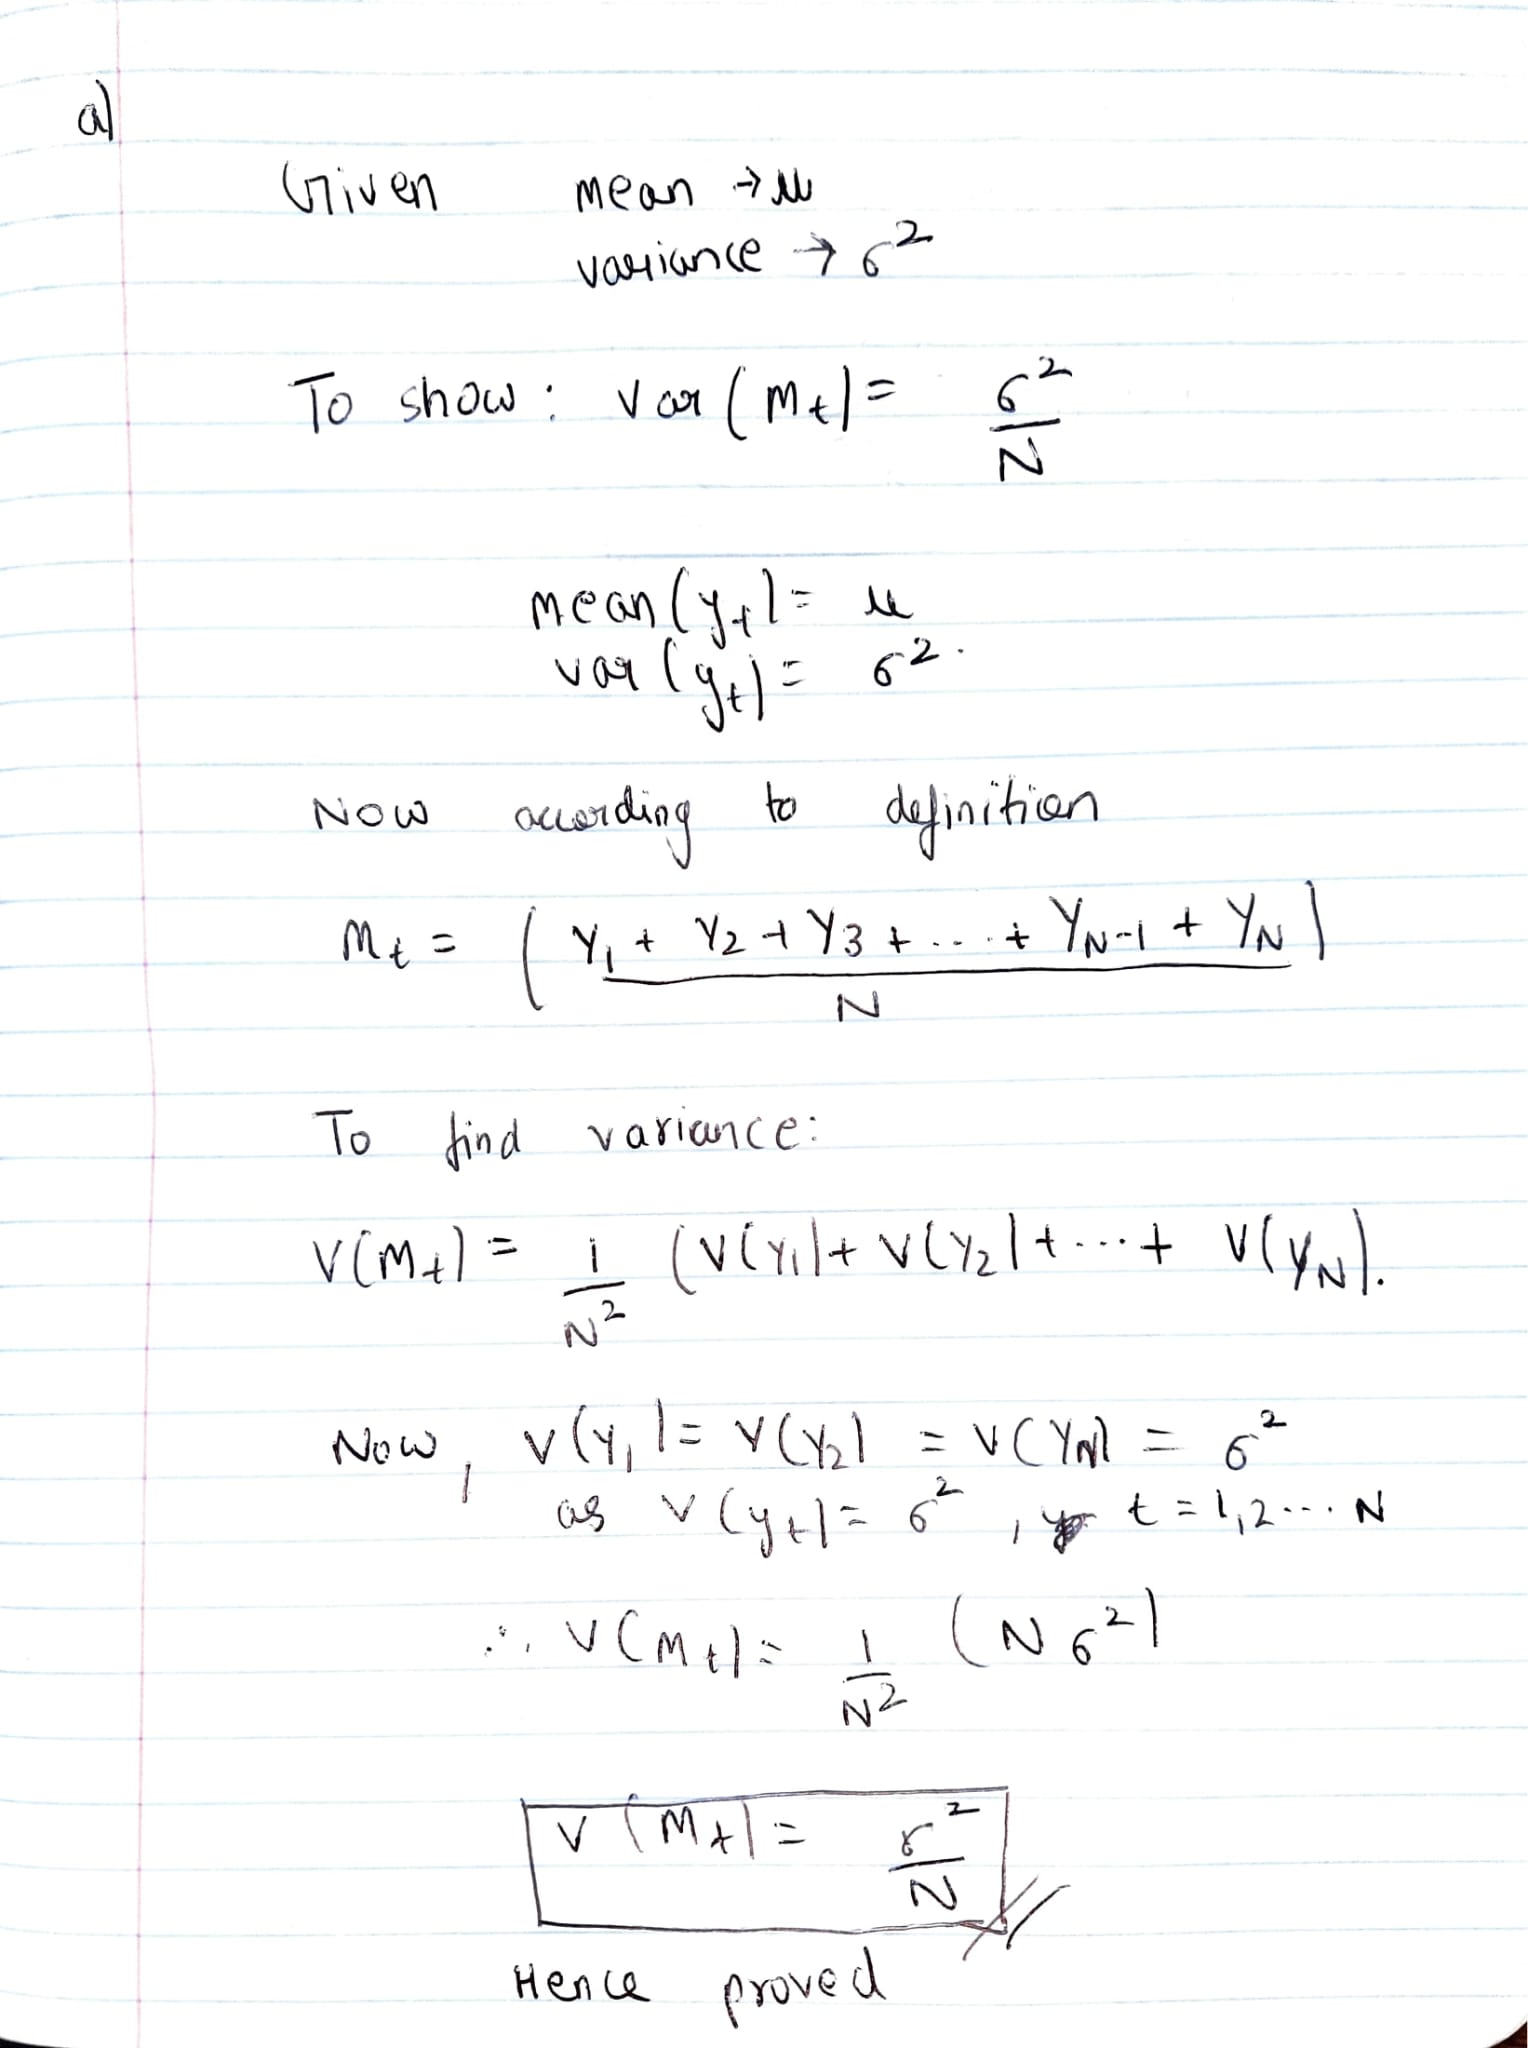 a)
Given mean → μ
variance → σ²
To show: var (Mt) = σ²/N
mean (yt) = μ
var (yt) = σ².
Now according to definition
Mt = (Y₁ + Y₂ + Y₃ + ... + YN-1 + YN)
N
To find variance:
V(Mt) = 1/N² (V(Y₁) + V(Y₂) + ... + V(YN).
Now, V(Y₁) = V(Y₂) = V(YN) = σ²
as V(yt) = σ², t = 1,2... N
∴ V(Mt) = 1/N² (Nσ²)
V(Mt) = σ²/N
Hence proved